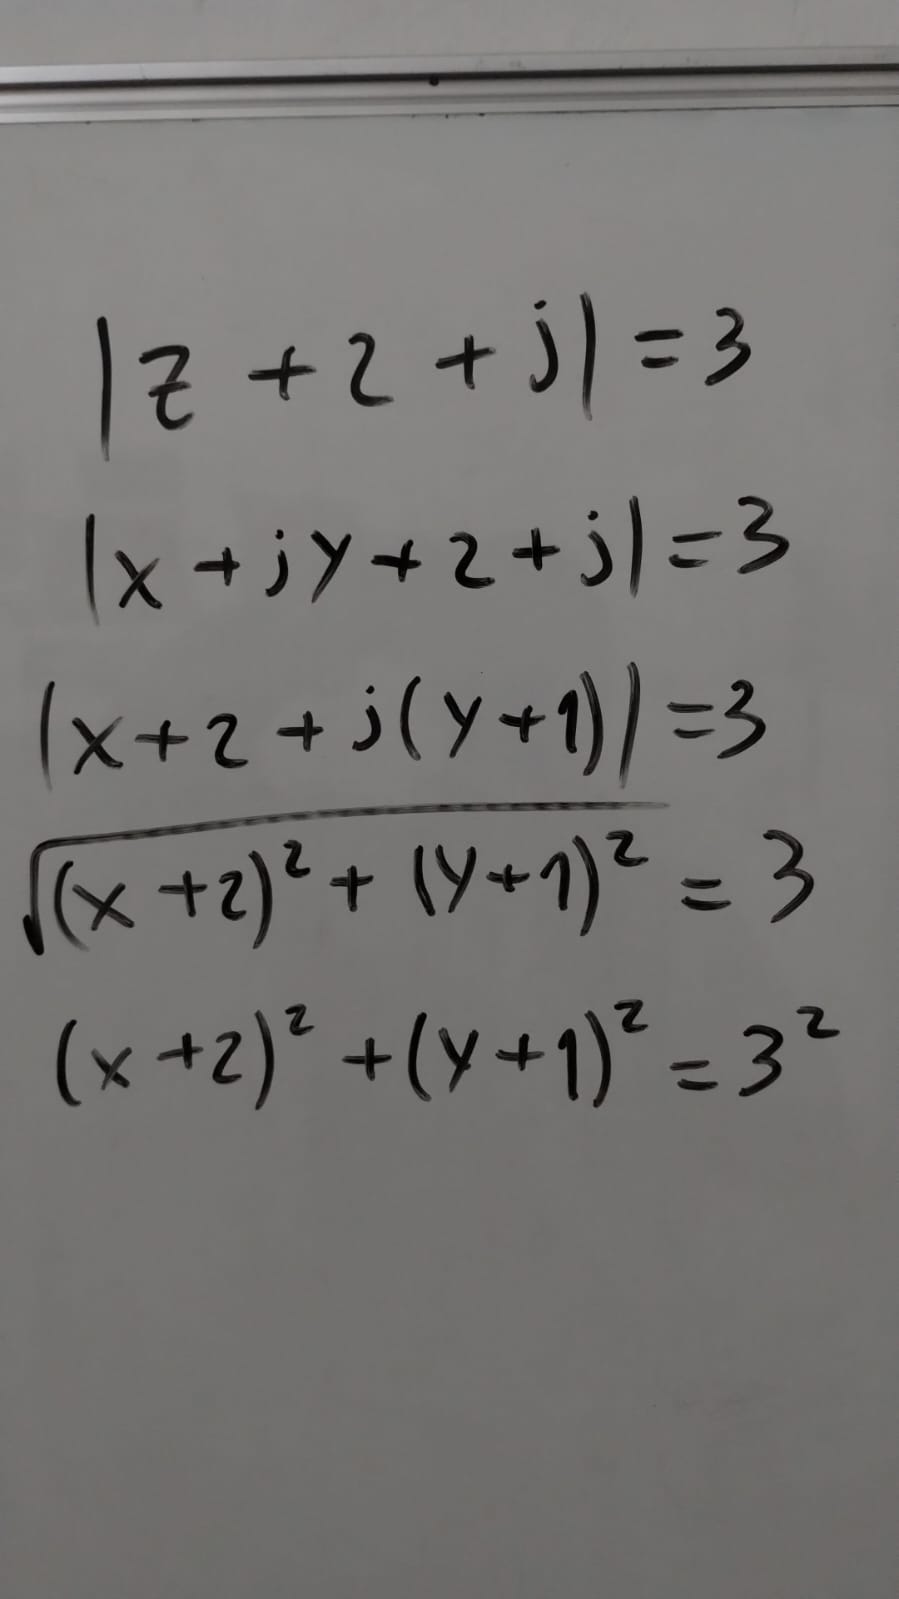 |z + 2 + j| = 3
|x + jy + 2 + j| = 3
|x + 2 + j(y + 1)| = 3
√(x + 2)² + (y + 1)² = 3
(x + 2)² + (y + 1)² = 3²